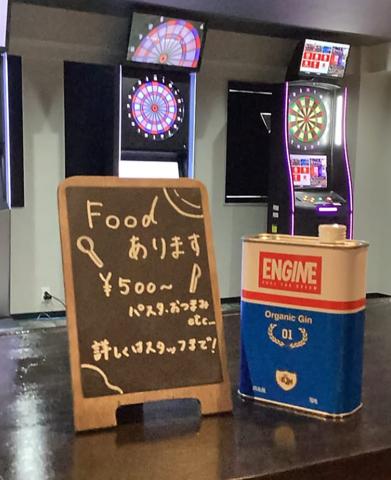 Food
あります
¥500～
パスタ、おつまみ
etc...
詳しくはスタッフまで!
ENGINE
FUEL THE DREAM
Organic Gin
01